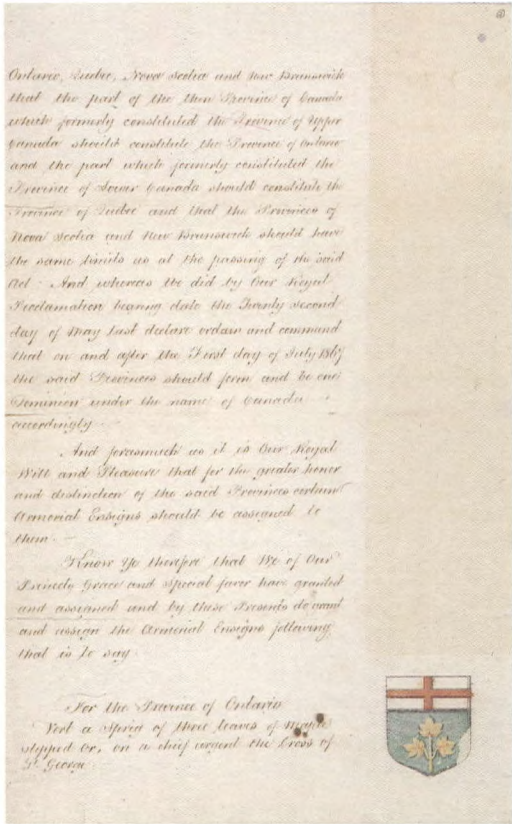 Ontario, Quebec, Nova Scotia and New Brunswick
that the part of the then Province of Canada
which formerly constituted the Province of Upper
Canada should constitute the Province of Ontario
and the part which formerly constituted the
Province of Lower Canada should constitute the
Province of Quebec and that the Provinces of
Nova Scotia and New Brunswick should have
the same limits as at the passing of the said
Act. And whereas We did by Our Royal
Proclamation bearing date the Twenty second
day of May last declare ordain and command
that on and after the First day of July 1867
the said Provinces should form and be one
Dominion under the name of Canada
accordingly
And forasmuch as it is Our Royal
Will and Pleasure that for the greater honor
and distinction of the said Provinces certain
Armorial Ensigns should be assigned to
them.
Know Ye therefore that We of Our
Princely Grace and special favor have granted
and assigned and by these Presents do grant
and assign the Armorial Ensigns following
that is to say
For the Province of Ontario
Vert a Sprig of three leaves of Maple
slipped Or, on a chief argent the Cross of
St. George